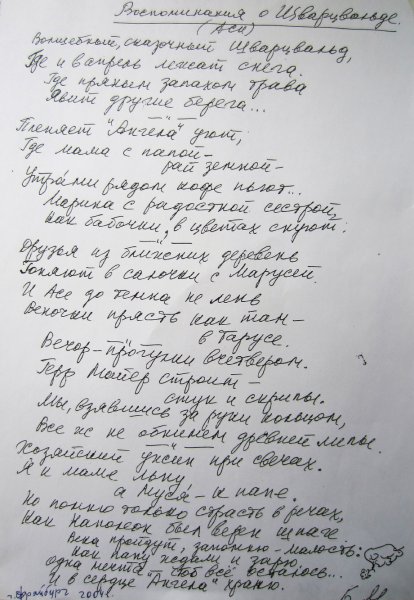 Воспоминания о Шварцвальде.
(Аси)
Волшебный, сказочный Шварцвальд,
Где и в апрель лежат снега.
Где пряным запахом трава
Явит другие берега...
Пленяет "Ангела" уют,
Где мама с папой –
рай земной –
Утрами рядом кофе пьют...
Марина с радостной сестрой,
Как бабочки, в цветах снуют.
Друзья из ближних деревень
Гоняют в салочки с Марусей.
И Асе до темна не лень
Веночки прясть как там –
в Тарусе.
Вечор – прогулки вчетвером.
Герр Майер строит –
стук и скрипы.
Мы, взявшись за руки кольцом,
Все ж не обнимем древней липы.
Хозяйский ужин при свечах.
Я к маме льну,
а Муся – к папе.
Но помню только страсть в речах,
Как Наполеон был верен шпаге.
Века пройдут, запомню – малость:
Как папу ждали и зарю.
одна мечта – чтоб всё осталось...
И в сердце "Ангела" храню.
Фрайбург 2004г.